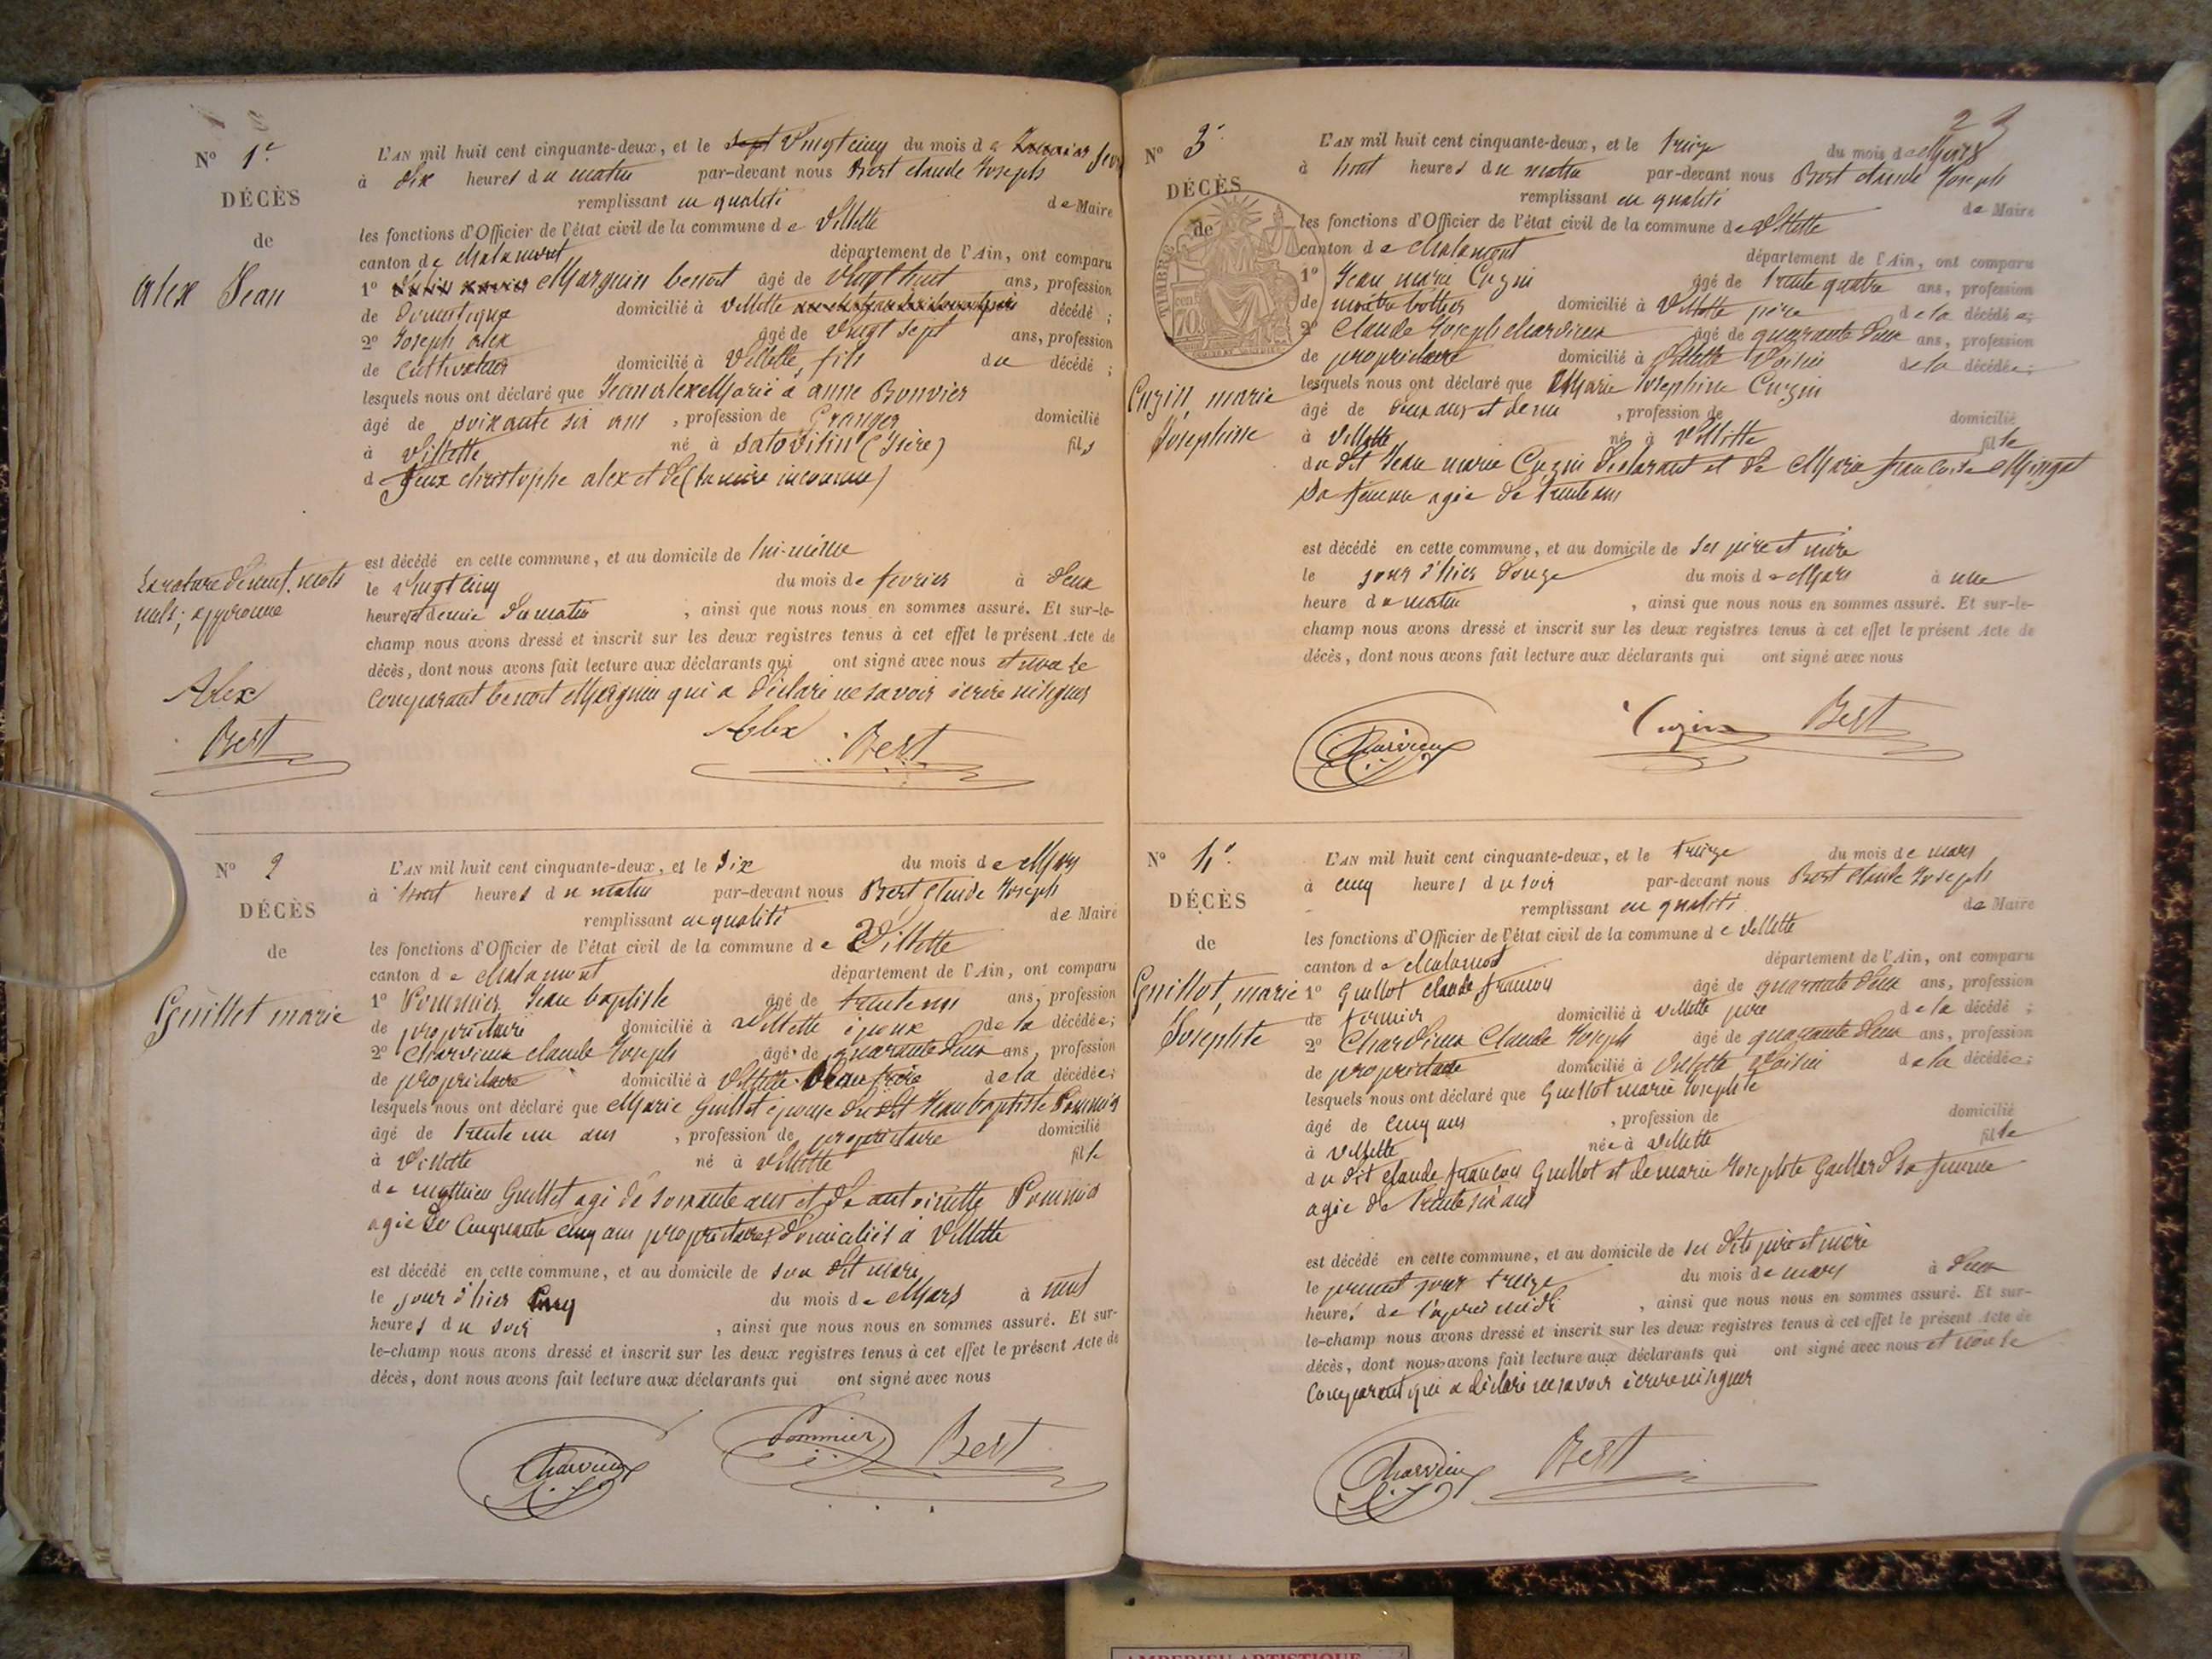 Nº 1.
DÉCÈS
de
Alex Jean
L'AN mil huit cent cinquante-deux, et le vingt cinq du mois de
à dix heures du matin par-devant nous Bert Claude Joseph
remplissant en qualité de Maire
les fonctions d'Officier de l'état civil de la commune de Villette
canton de Chalamont département de l'Ain, ont comparu
1º Marguin benoit âgé de vingt huit ans, profession
de Domestique domicilié à Villette décédé ;
2º Joseph alex âgé de vingt sept ans, profession
de Cultivateur domicilié à Villette, fils du décédé ;
lesquels nous ont déclaré que Jean alex Marié à anne Bonvier
âgé de soixante six ans , profession de Granger domicilié
à Villette né à (Isère) fils
de feux christophe alex et de (la mère inconnue)
est décédé en cette commune, et au domicile de lui-même
le vingt cinq du mois de fevrier à deux
heures et demie du matin , ainsi que nous nous en sommes assuré. Et sur-le-
champ nous avons dressé et inscrit sur les deux registres tenus à cet effet le présent Acte de
décès, dont nous avons fait lecture aux déclarants qui ont signé avec nous et non le
Comparant benoit Marguin qui a déclaré ne savoir écrire ni signer
La rature de neuf mots
nuls; approuvée
Alex
Bert
Alex Bert
Nº 2
DÉCÈS
de
Guillet marie
L'AN mil huit cent cinquante-deux, et le six du mois de Mars
à huit heures du matin par-devant nous Bert Claude Joseph
remplissant en qualité de Maire
les fonctions d'Officier de l'état civil de la commune de Villette
canton de Chalamont département de l'Ain, ont comparu
1º Pommier Jean baptiste âgé de ans, profession
de propriétaire domicilié à Villette époux de la décédée;
2º Charvieux Claude Joseph âgé de quarante deux ans, profession
de propriétaire domicilié à Villette Beau frère de la décédée;
lesquels nous ont déclaré que Marie Guillet épouse du dit Jean baptiste Pommier
âgé de trente un ans , profession de propriétaire domicilié
à Villette né à Villette fille
de mathieu Guillet agé de soixante ans et de antoinette Pommier
agée de Cinquante cinq ans propriétaires domiciliés à Villette
est décédé en cette commune, et au domicile de son dit mari
le jour d'hier Cinq du mois de Mars à neuf
heures du soir , ainsi que nous nous en sommes assuré. Et sur-
le-champ nous avons dressé et inscrit sur les deux registres tenus à cet effet le présent Acte de
décès, dont nous avons fait lecture aux déclarants qui ont signé avec nous
Charvieux Pommier Bert
23
Nº 3.
DÉCÈS
de
TIMBRE
70
Cuzin, marie
Josephine
L'AN mil huit cent cinquante-deux, et le treize du mois de Mars
à huit heures du matin par-devant nous Bert Claude Joseph
remplissant en qualité de Maire
les fonctions d'Officier de l'état civil de la commune de Villette
canton de Chalamont département de l'Ain, ont comparu
1º Jean marie Cuzin âgé de trente quatre ans, profession
de maître bottier domicilié à Villette père de la décédée;
2º Claude Joseph Charvieux âgé de quarante deux ans, profession
de propriétaire domicilié à Villette Voisin de la décédée;
lesquels nous ont déclaré que Marie Josephine Cuzin
âgé de deux ans et demi , profession de domicilié
à Villette né à Villette fille
du dit Jean marie Cuzin Déclarant et de Marie françoise Mingat
sa femme agée de trente ans
est décédé en cette commune, et au domicile de ses père et mère
le jour d'hier douze du mois de Mars à une
heure du matin , ainsi que nous nous en sommes assuré. Et sur-le-
champ nous avons dressé et inscrit sur les deux registres tenus à cet effet le présent Acte de
décès, dont nous avons fait lecture aux déclarants qui ont signé avec nous
Charvieux Cuzin Bert
Nº 4.
DÉCÈS
de
Guillot, marie
Josephte
L'AN mil huit cent cinquante-deux, et le treize du mois de mars
à cinq heures du soir par-devant nous Bert Claude Joseph
remplissant en qualité de Maire
les fonctions d'Officier de l'état civil de la commune de Villette
canton de Chalamont département de l'Ain, ont comparu
1º Guillot Claude françois âgé de quarante deux ans, profession
de fermier domicilié à Villette père de la décédé ;
2º Charvieux Claude Joseph âgé de quarante deux ans, profession
de propriétaire domicilié à Villette Voisin de la décédée;
lesquels nous ont déclaré que Guillot marie Josephte
âgé de Cinq ans , profession de domicilié
à Villette née à Villette fille
du dit Claude françois Guillot et de marie Josephte Gaillard sa femme
agée de trente six ans
est décédé en cette commune, et au domicile de ses dits père et mère
le présent jour treize du mois de mars à deux
heures de l'après midi , ainsi que nous nous en sommes assuré. Et sur-
le-champ nous avons dressé et inscrit sur les deux registres tenus à cet effet le présent Acte de
décès, dont nous avons fait lecture aux déclarants qui ont signé avec nous et non le
Comparant qui a déclaré ne savoir écrire ni signer
Charvieux Bert
AMBERIEU ARTISTIQUE